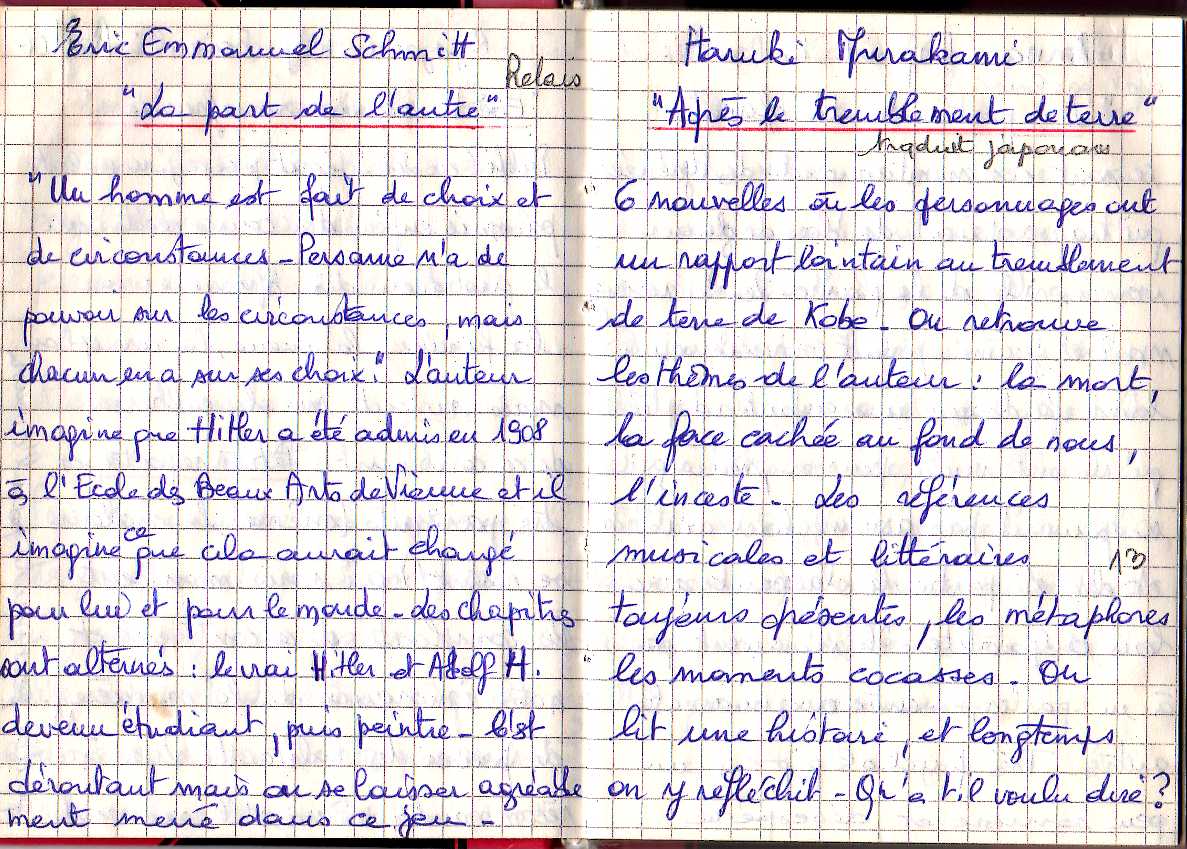 Eric Emmanuel Schmitt
Relais
"La part de l'autre"
"Un homme est fait de choix et
de circonstances - Personne n'a de
pouvoir sur les circonstances, mais
chacun en a sur ses choix." L'auteur
imagine que Hitler a été admis en 1908
à l'Ecole des Beaux Arts de Vienne et il
imagine ce que cela aurait changé
pour lui et pour le monde - des chapitres
sont alternés : le vrai Hitler et Adolf H.
devenu étudiant, puis peintre - C'est
déroutant mais on se laisser agréable
ment mené dans ce jeu -
Haruki Murakami
"Après le tremblement de terre"
traduit japonais
6 nouvelles où les personnages ont
un rapport lointain au tremblement
de terre de Kobe - On retrouve
les thèmes de l'auteur : la mort,
la face cachée au fond de nous,
l'inceste - Les références
musicales et littéraires 13
toujours présentes, les métaphores
les moments cocasses - On
lit une histoire, et longtemps
on y réfléchit - Qu'a t.il voulu dire ?